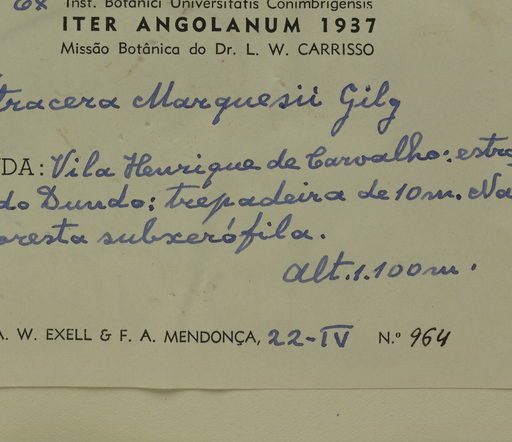 Ex Inst. Botanici Universitatis Conimbrigensis
ITER ANGOLANUM 1937
Missão Botânica do Dr. L. W. CARRISSO
tracera Marquesii Gilg
DA: Vila Henrique de Carvalho: estra
do Dundo: trepadeira de 10m. Na
oresta subxerófila.
Alt. 1.100m.
A. W. EXELL & F. A. MENDONÇA, 22-IV N.º 964